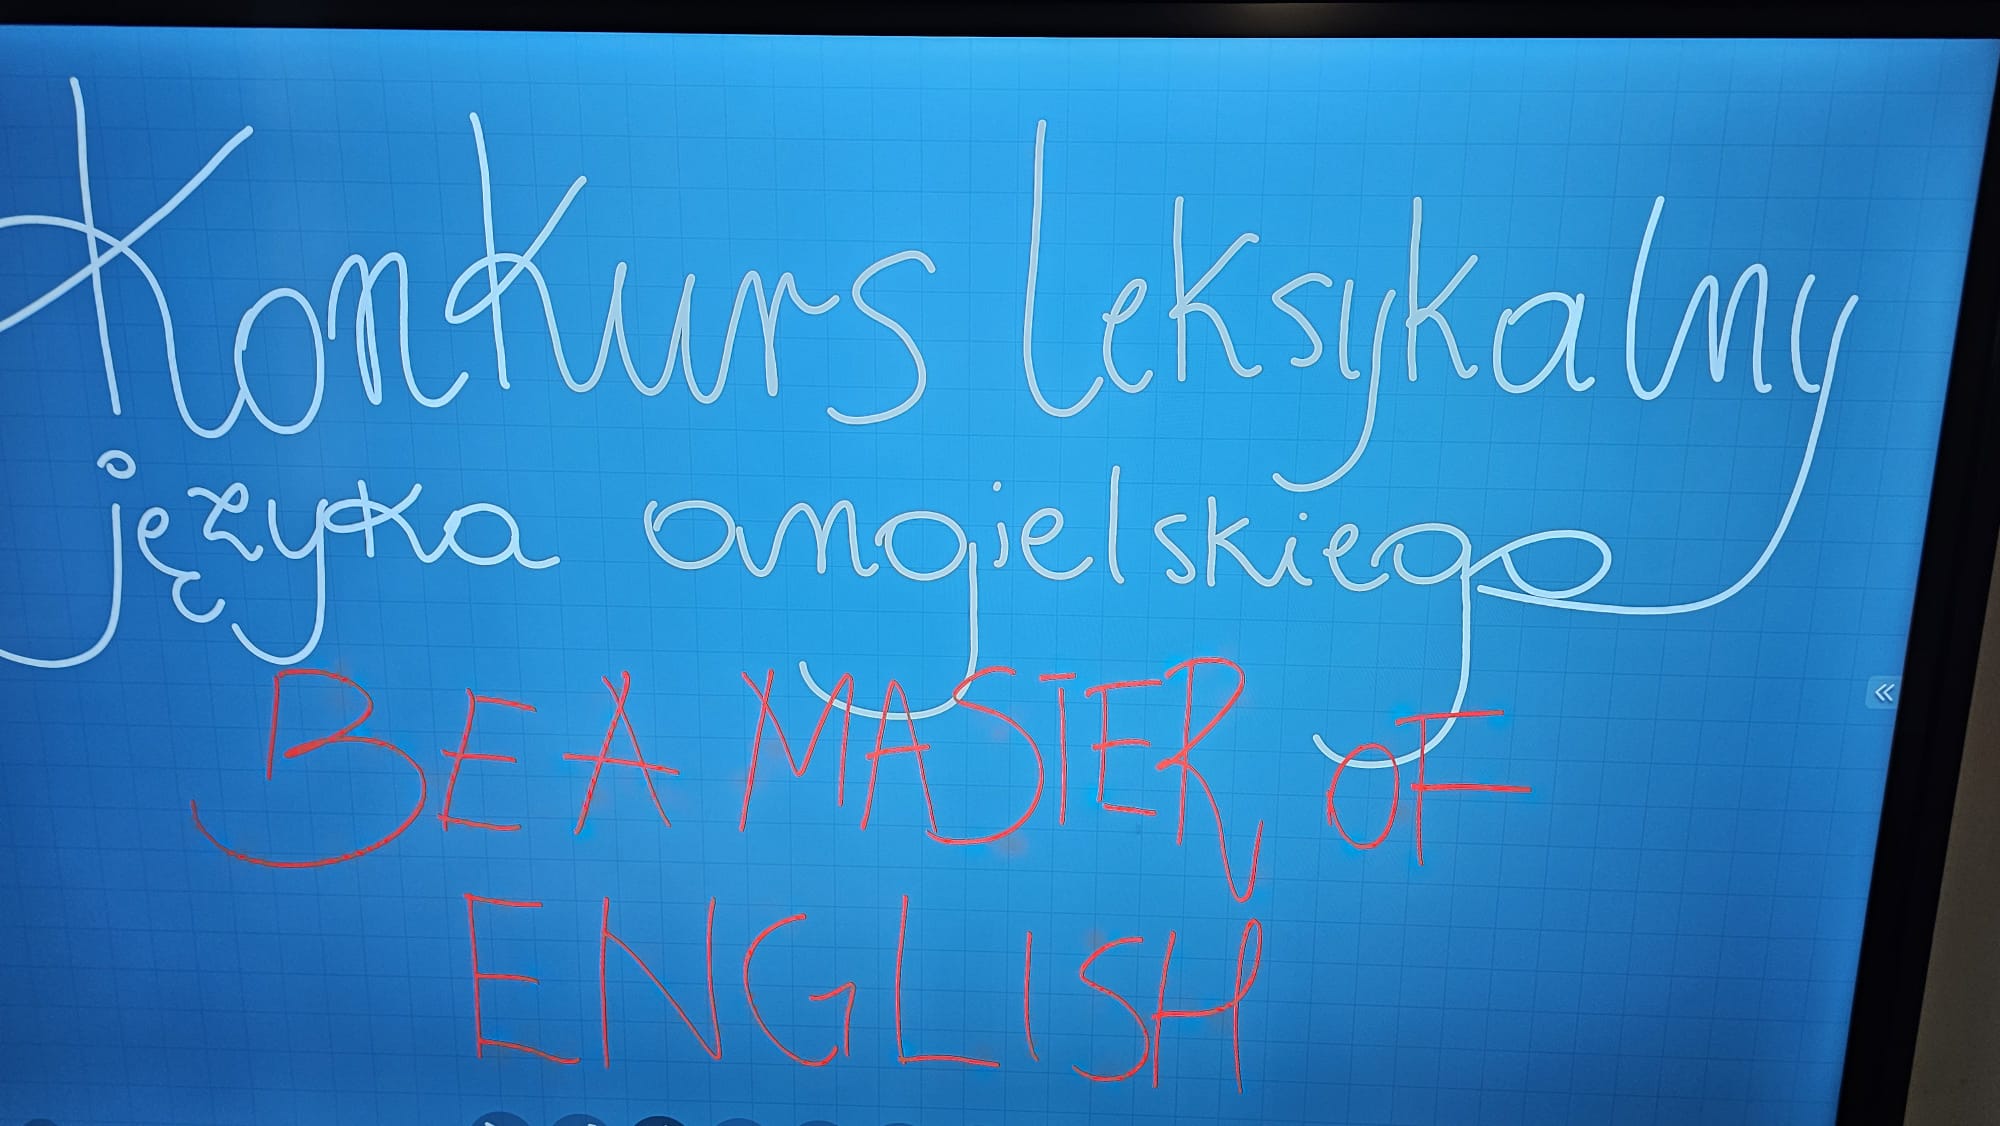 Konkurs leksykalny
języka angielskiego
BE A MASTER OF
ENGLISH